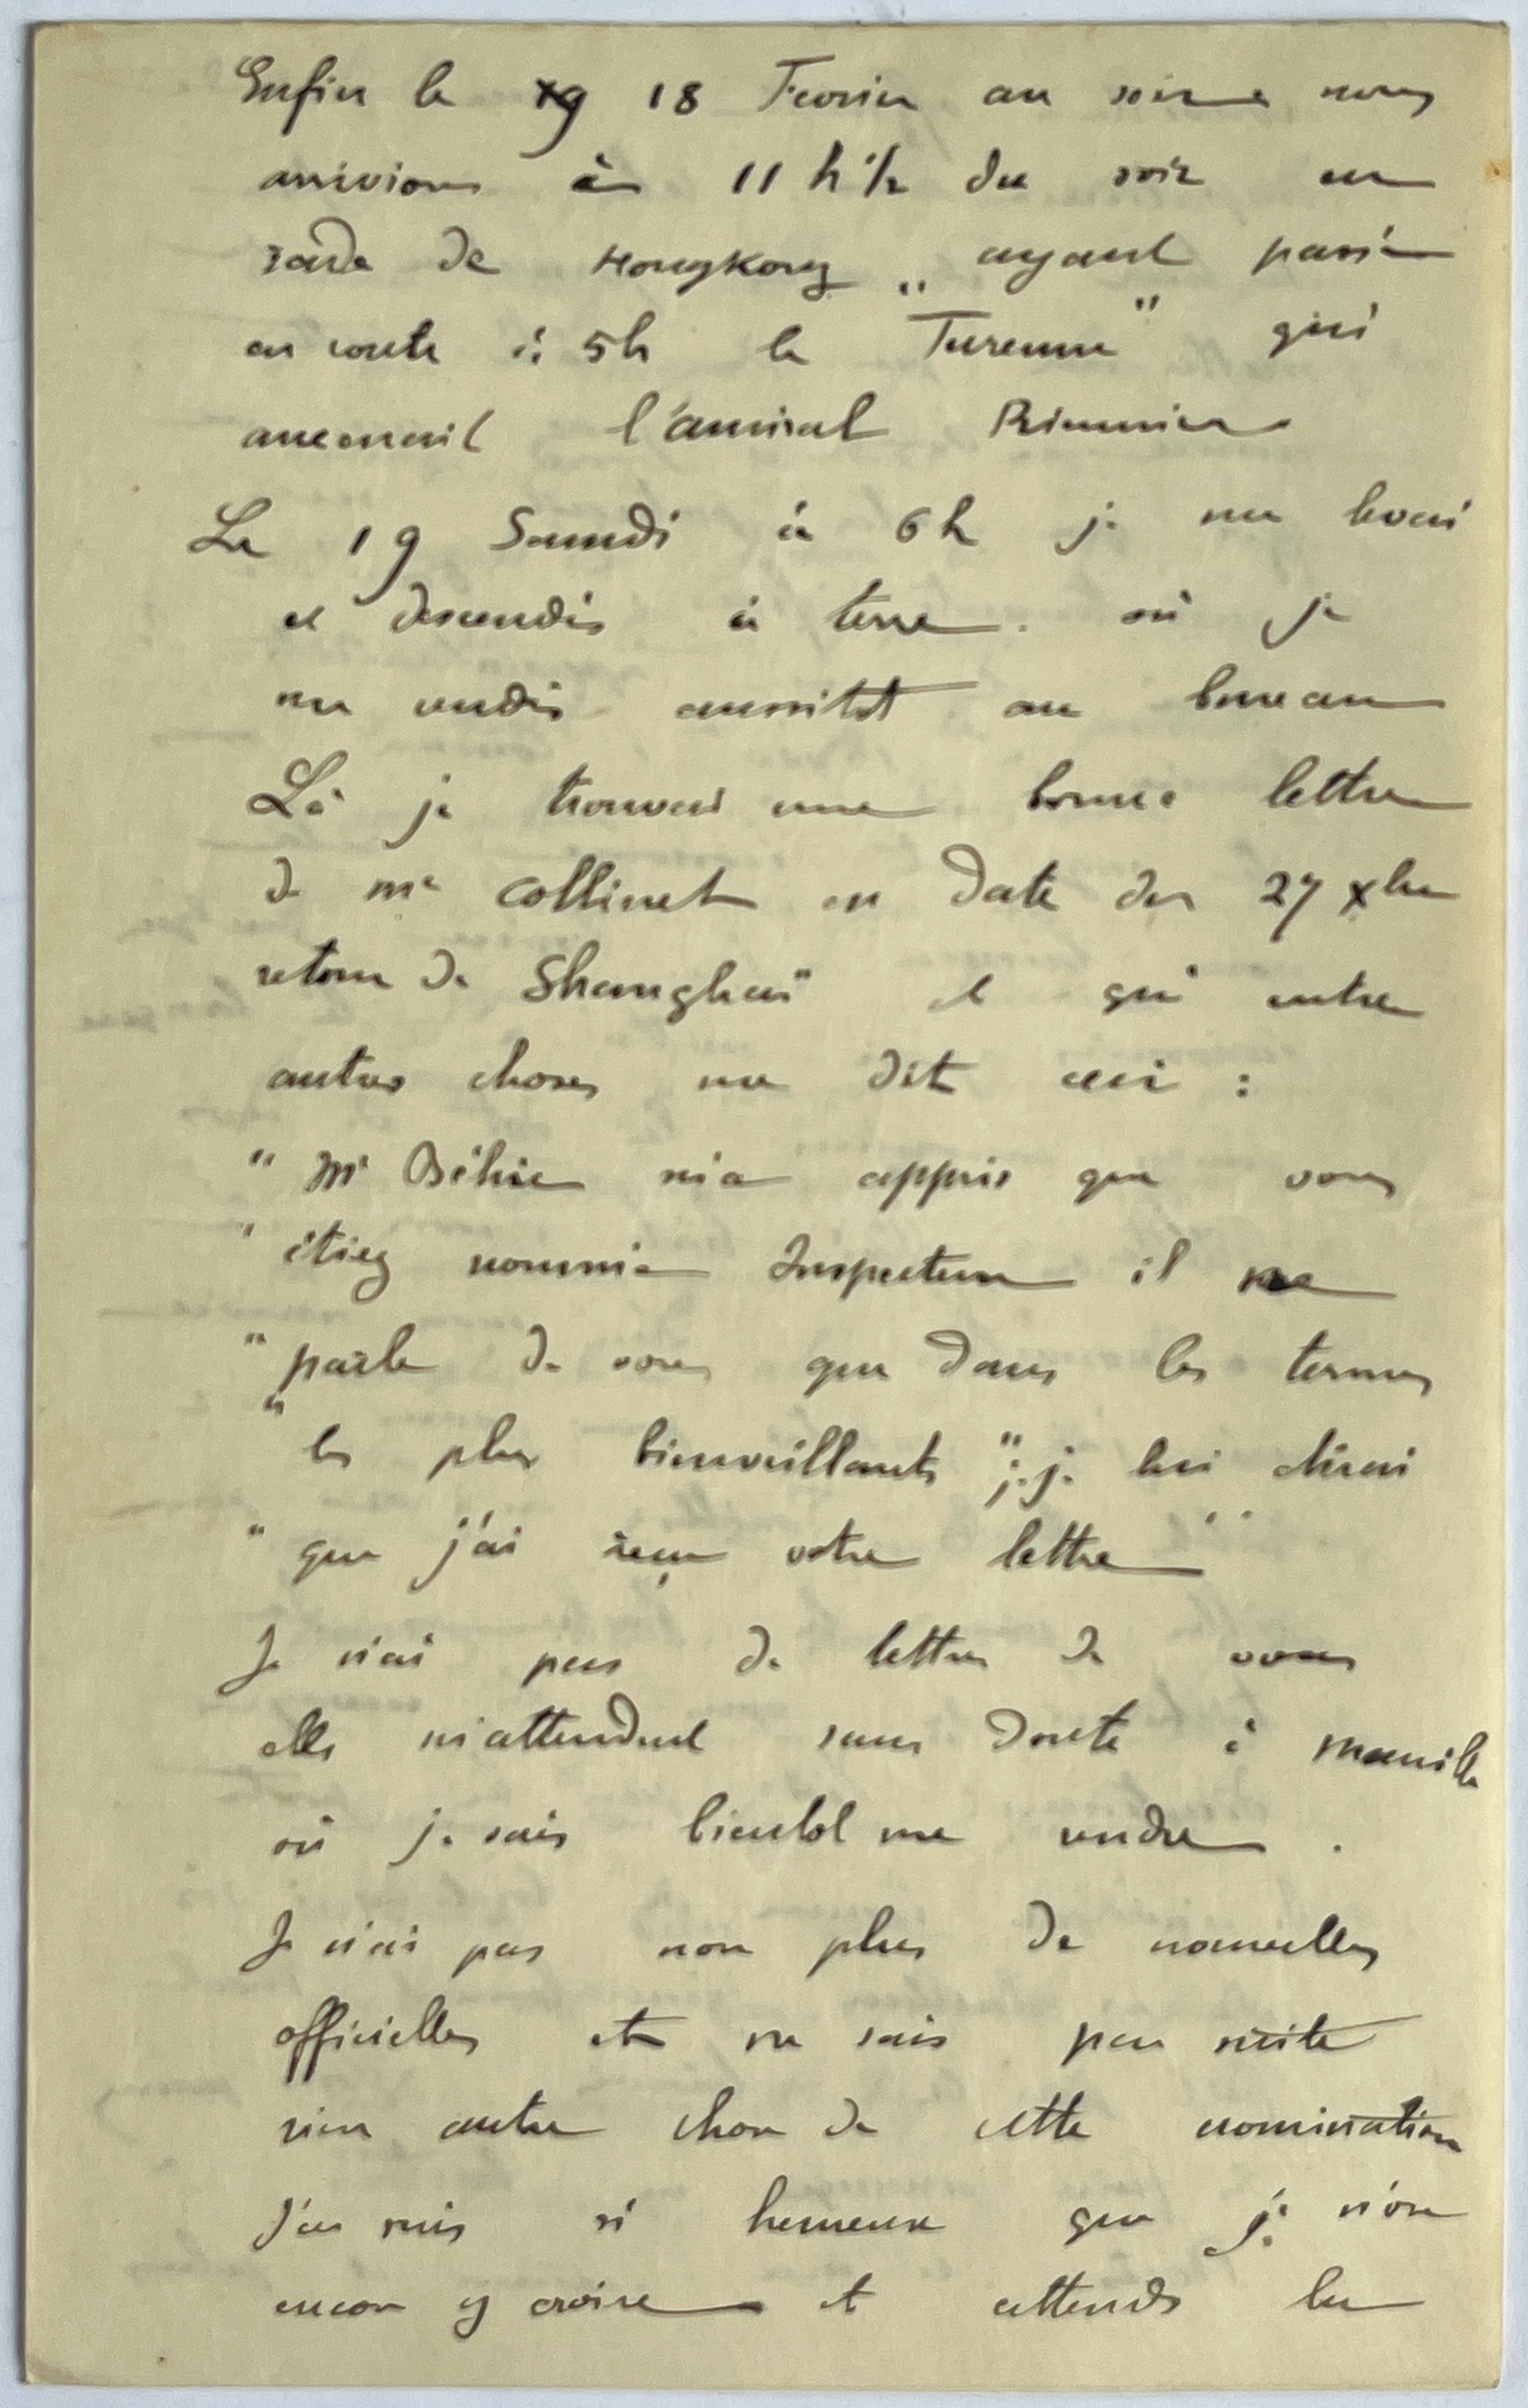 Enfin le 18 Fevrier au soir nous
arrivions à 11 h ½ du soir en
rade de Hongkong ayant passé
en route à 5h le "Turenne" qui
amenait l'amiral Rieunier
Le 19 Samedi à 6h je me levai
et descendis à terre. où je
me rendis aussitôt au bureau
Là je trouvai une bonne lettre
de Mr Collinet en date du 27 xbre
retour de Shanghaï et qui entre
autres choses me dit ceci :
" Mr Béhic m'a appris que vous
" étiez nommé Inspecteur il ne
" parle de vous que dans les termes
" les plus bienveillants "; je lui dirai
" que j'ai reçu votre lettre "
Je n'ai pas de lettres de vous
elles m'attendent sans doute à Manille
où je vais bientôt me rendre.
Je n'ai pas non plus de nouvelles
officielles et ne sais par suite
rien autre chose de cette nomination
J'en suis si heureux que je n'ose
encore y croire et attends la